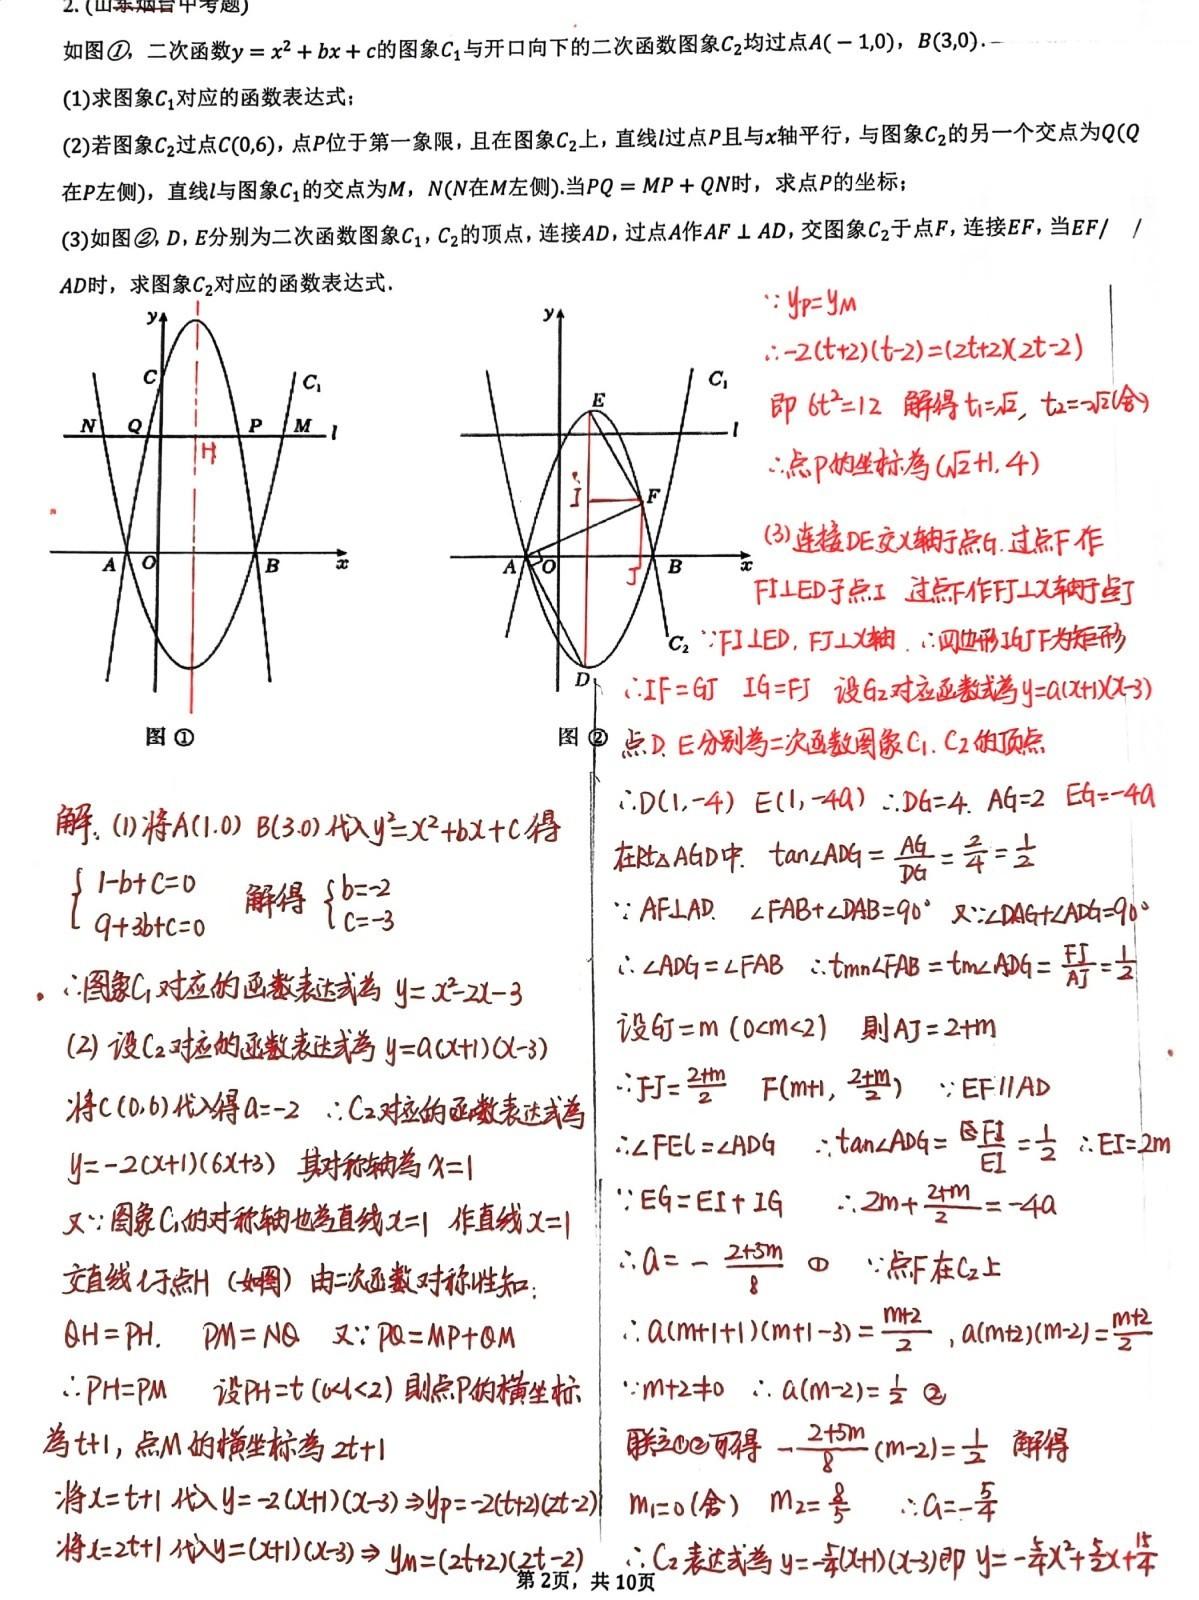 2.(山东烟台中考题)
如图①，二次函数y = x² + bx + c的图象C₁与开口向下的二次函数图象C₂均过点A( − 1,0)，B(3,0).
(1)求图象C₁对应的函数表达式；
(2)若图象C₂过点C(0,6)，点P位于第一象限，且在图象C₂上，直线l过点P且与x轴平行，与图象C₂的另一个交点为Q(Q
在P左侧)，直线l与图象C₁的交点为M，N(N在M左侧).当PQ = MP + QN时，求点P的坐标；
(3)如图②，D，E分别为二次函数图象C₁，C₂的顶点，连接AD，过点A作AF ⊥ AD，交图象C₂于点F，连接EF，当EF/ /
AD时，求图象C₂对应的函数表达式.
y
C
C₁
N Q P M l
H
A O B x
图 ①
y
C₁
E
l
I F
A O J B x
C₂
D
图 ②
解. (1)将A(1.0) B(3.0)代入y²=x²+bx+c得
{ 1-b+c=0
9+3b+c=0
解得 { b=-2
c=-3
∴图象C₁对应的函数表达式為 y= x²-2x-3
(2) 设C₂对应的函数表达式為 y=a(x+1)(x-3)
将C(0,6)代入得a=-2 ∴C₂对应的函数表达式為
y=-2(x+1)(6x+3) 其对称轴為x=1
又∵图象C₁的对称轴也為直线x=1 作直线x=1
交直线l于点H (如图) 由二次函数对称性知:
QH=PH. PM=NQ 又∵PQ=MP+QM
∴PH=PM 设PH=t (0<t<2) 則点P的横坐标
為t+1, 点M的横坐标為2t+1
将x=t+1代入y=-2(x+1)(x-3)⇒yP=-2(t+2)(2t-2)
将x=2t+1代入y=(x+1)(x-3)⇒ yM=(2t+2)(2t-2)
∵yP=yM
∴-2(t+2)(t-2)=(2t+2)(2t-2)
即 6t²=12 解得 t₁=√2, t₂=-√2(舍)
∴点P的坐标為(√2+1, 4)
(3)连接DE交X轴于点G. 过点F作
FI⊥ED于点I 过点F作FJ⊥X轴于点J
∵FI⊥ED, FJ⊥X轴. ∴四边形IGJF为矩形
∴IF=GJ IG=FJ 设G₂对应函数式為y=a(x+1)(x-3)
点D. E分别為二次函数图象C₁. C₂的顶点
∴D(1,-4) E(1,-4a) ∴DG=4. AG=2 EG=-4a
在Rt△AGD中. tan∠ADG = AG/DG = 2/4 = 1/2
∵AF⊥AD. ∠FAB+∠DAB=90° 又∵∠DAG+∠ADG=90°
∴∠ADG=∠FAB ∴tmn∠FAB=tm∠ADG = FJ/AJ = 1/2
设GJ=m (0<m<2) 則AJ=2+m
∴FJ= 2+m/2 F(m+1, 2+m/2) ∵EF∥AD
∴∠FEI=∠ADG ∴tan∠ADG= FI/EI = 1/2 ∴EI=2m
∵EG=EI+IG ∴2m+ 2+m/2 =-4a
∴a= - 2+5m/8 ① ∵点F在C₂上
∴a(m+1+1)(m+1-3)= m+2/2 , a(m+2)(m-2)= m+2/2
∵m+2≠0 ∴a(m-2)= 1/2 ②
联立①②可得 - 2+5m/8 (m-2)= 1/2 解得
m₁=0(舍) m₂= 8/5 ∴a=- 5/4
∴C₂表达式為y=-5/4(x+1)(x-3)即 y=-5/4x²+5/2x+15/4
第 2页，共 10页